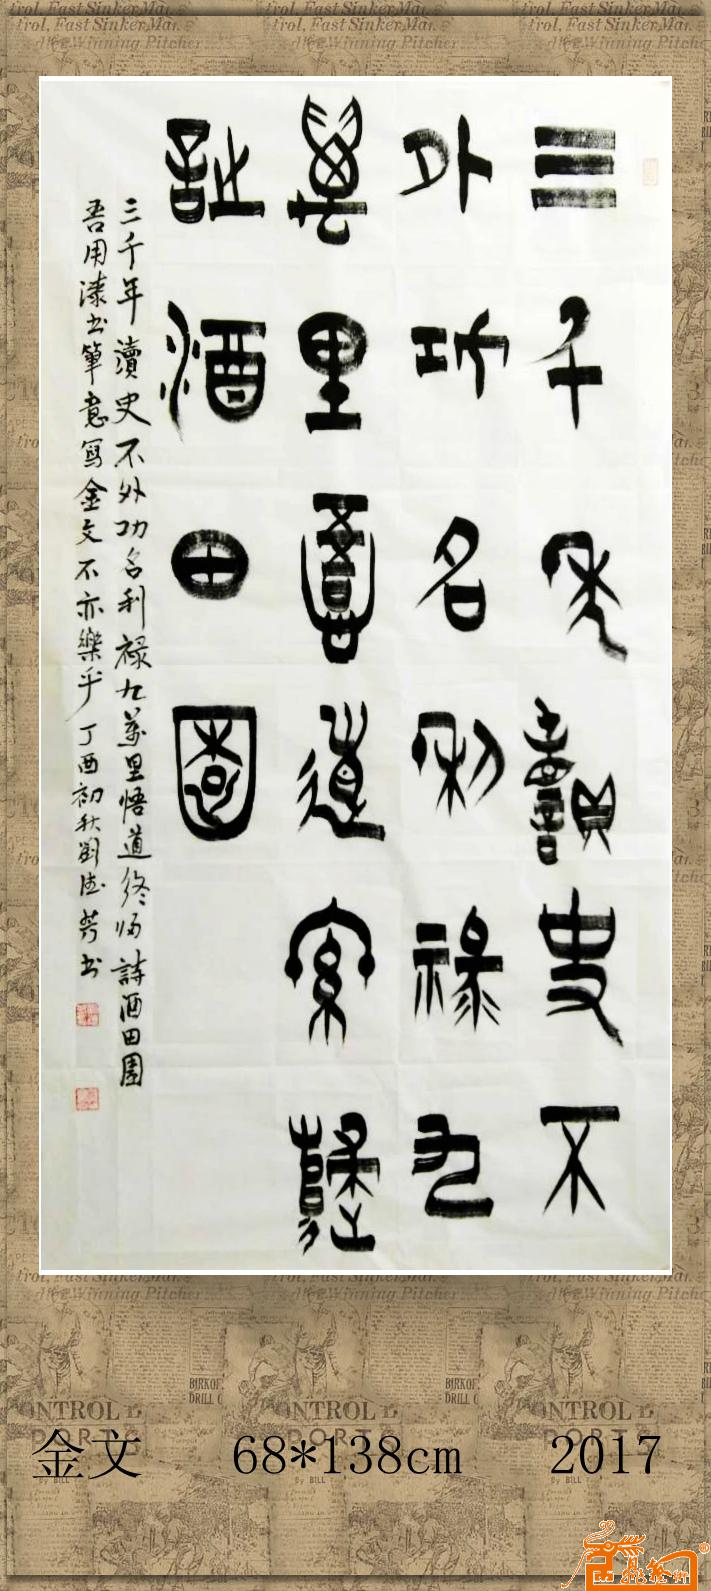 三千年讀史不
外功名利祿九
萬里悟道終歸
詩酒田園
三千年瀆史不外功名利祿九萬里悟道終歸詩酒田園
吾用漆书筆意寫金文不亦樂乎 丁酉初秋劉德芳书
金文 68*138cm 2017